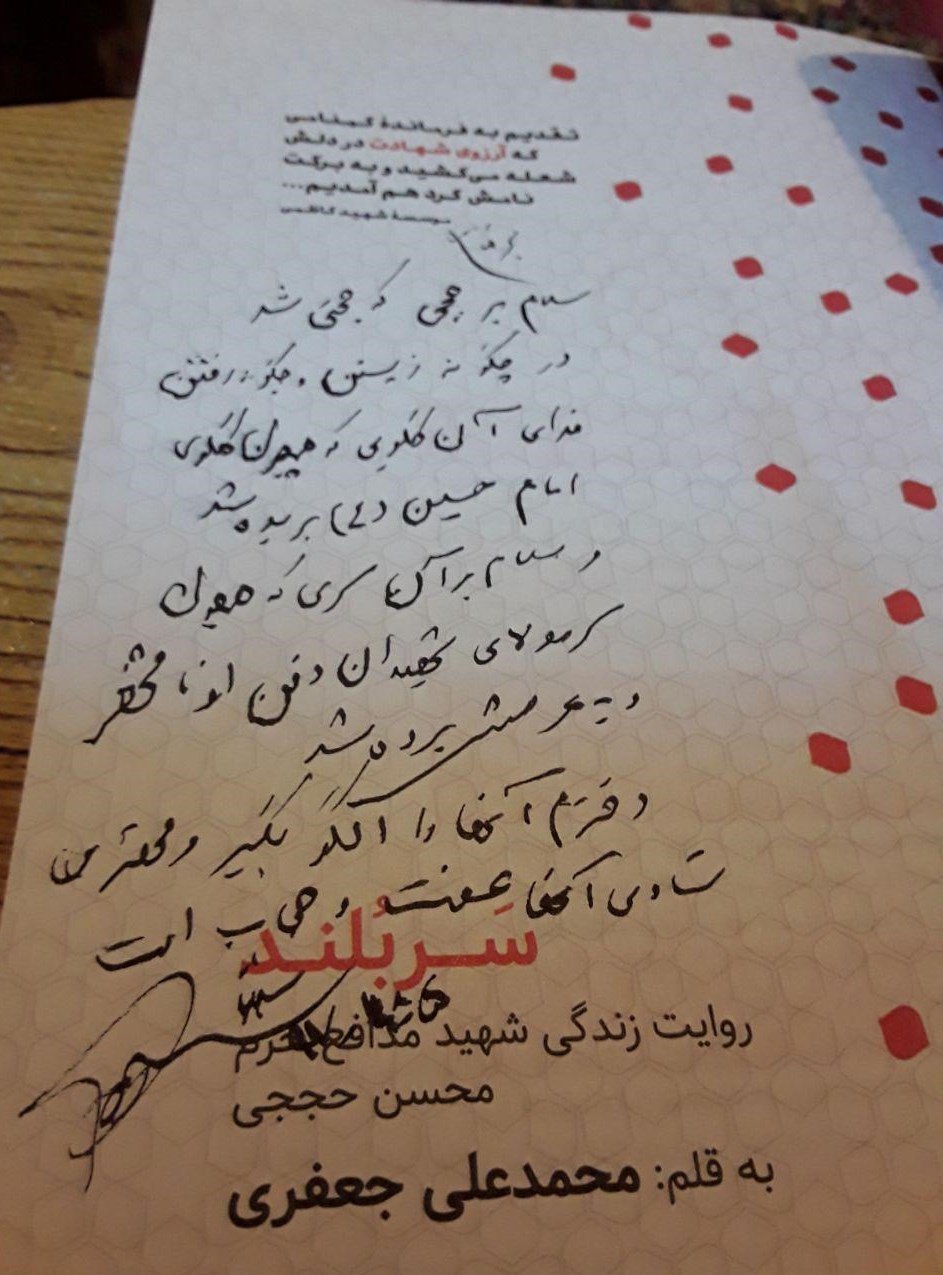 تقدیم به فرماندهٔ گمنامی
که آرزوی شهادت در دلش
شعله می‌کشید و به برکت
نامش گرد هم آمدیم...
موسسهٔ شهید کاظمی
سلام بر حججی که حجتی شد
در چگونه زیستن و چگونه رفتن
فدای آن گلویی که همچون گلوی
امام حسین (ع) بریده شد
و سلام بر آن سری که همچون
سر مولای شهیدان دفن او نا مشخص
و به عرشش برده شد
دخترم آنها را الگو بگیر و مهمترین
آنها عفت و حجاب است
سَربُلند
روایت زندگی شهید مدافع حرم
محسن حججی
به قلم: محمدعلی جعفری